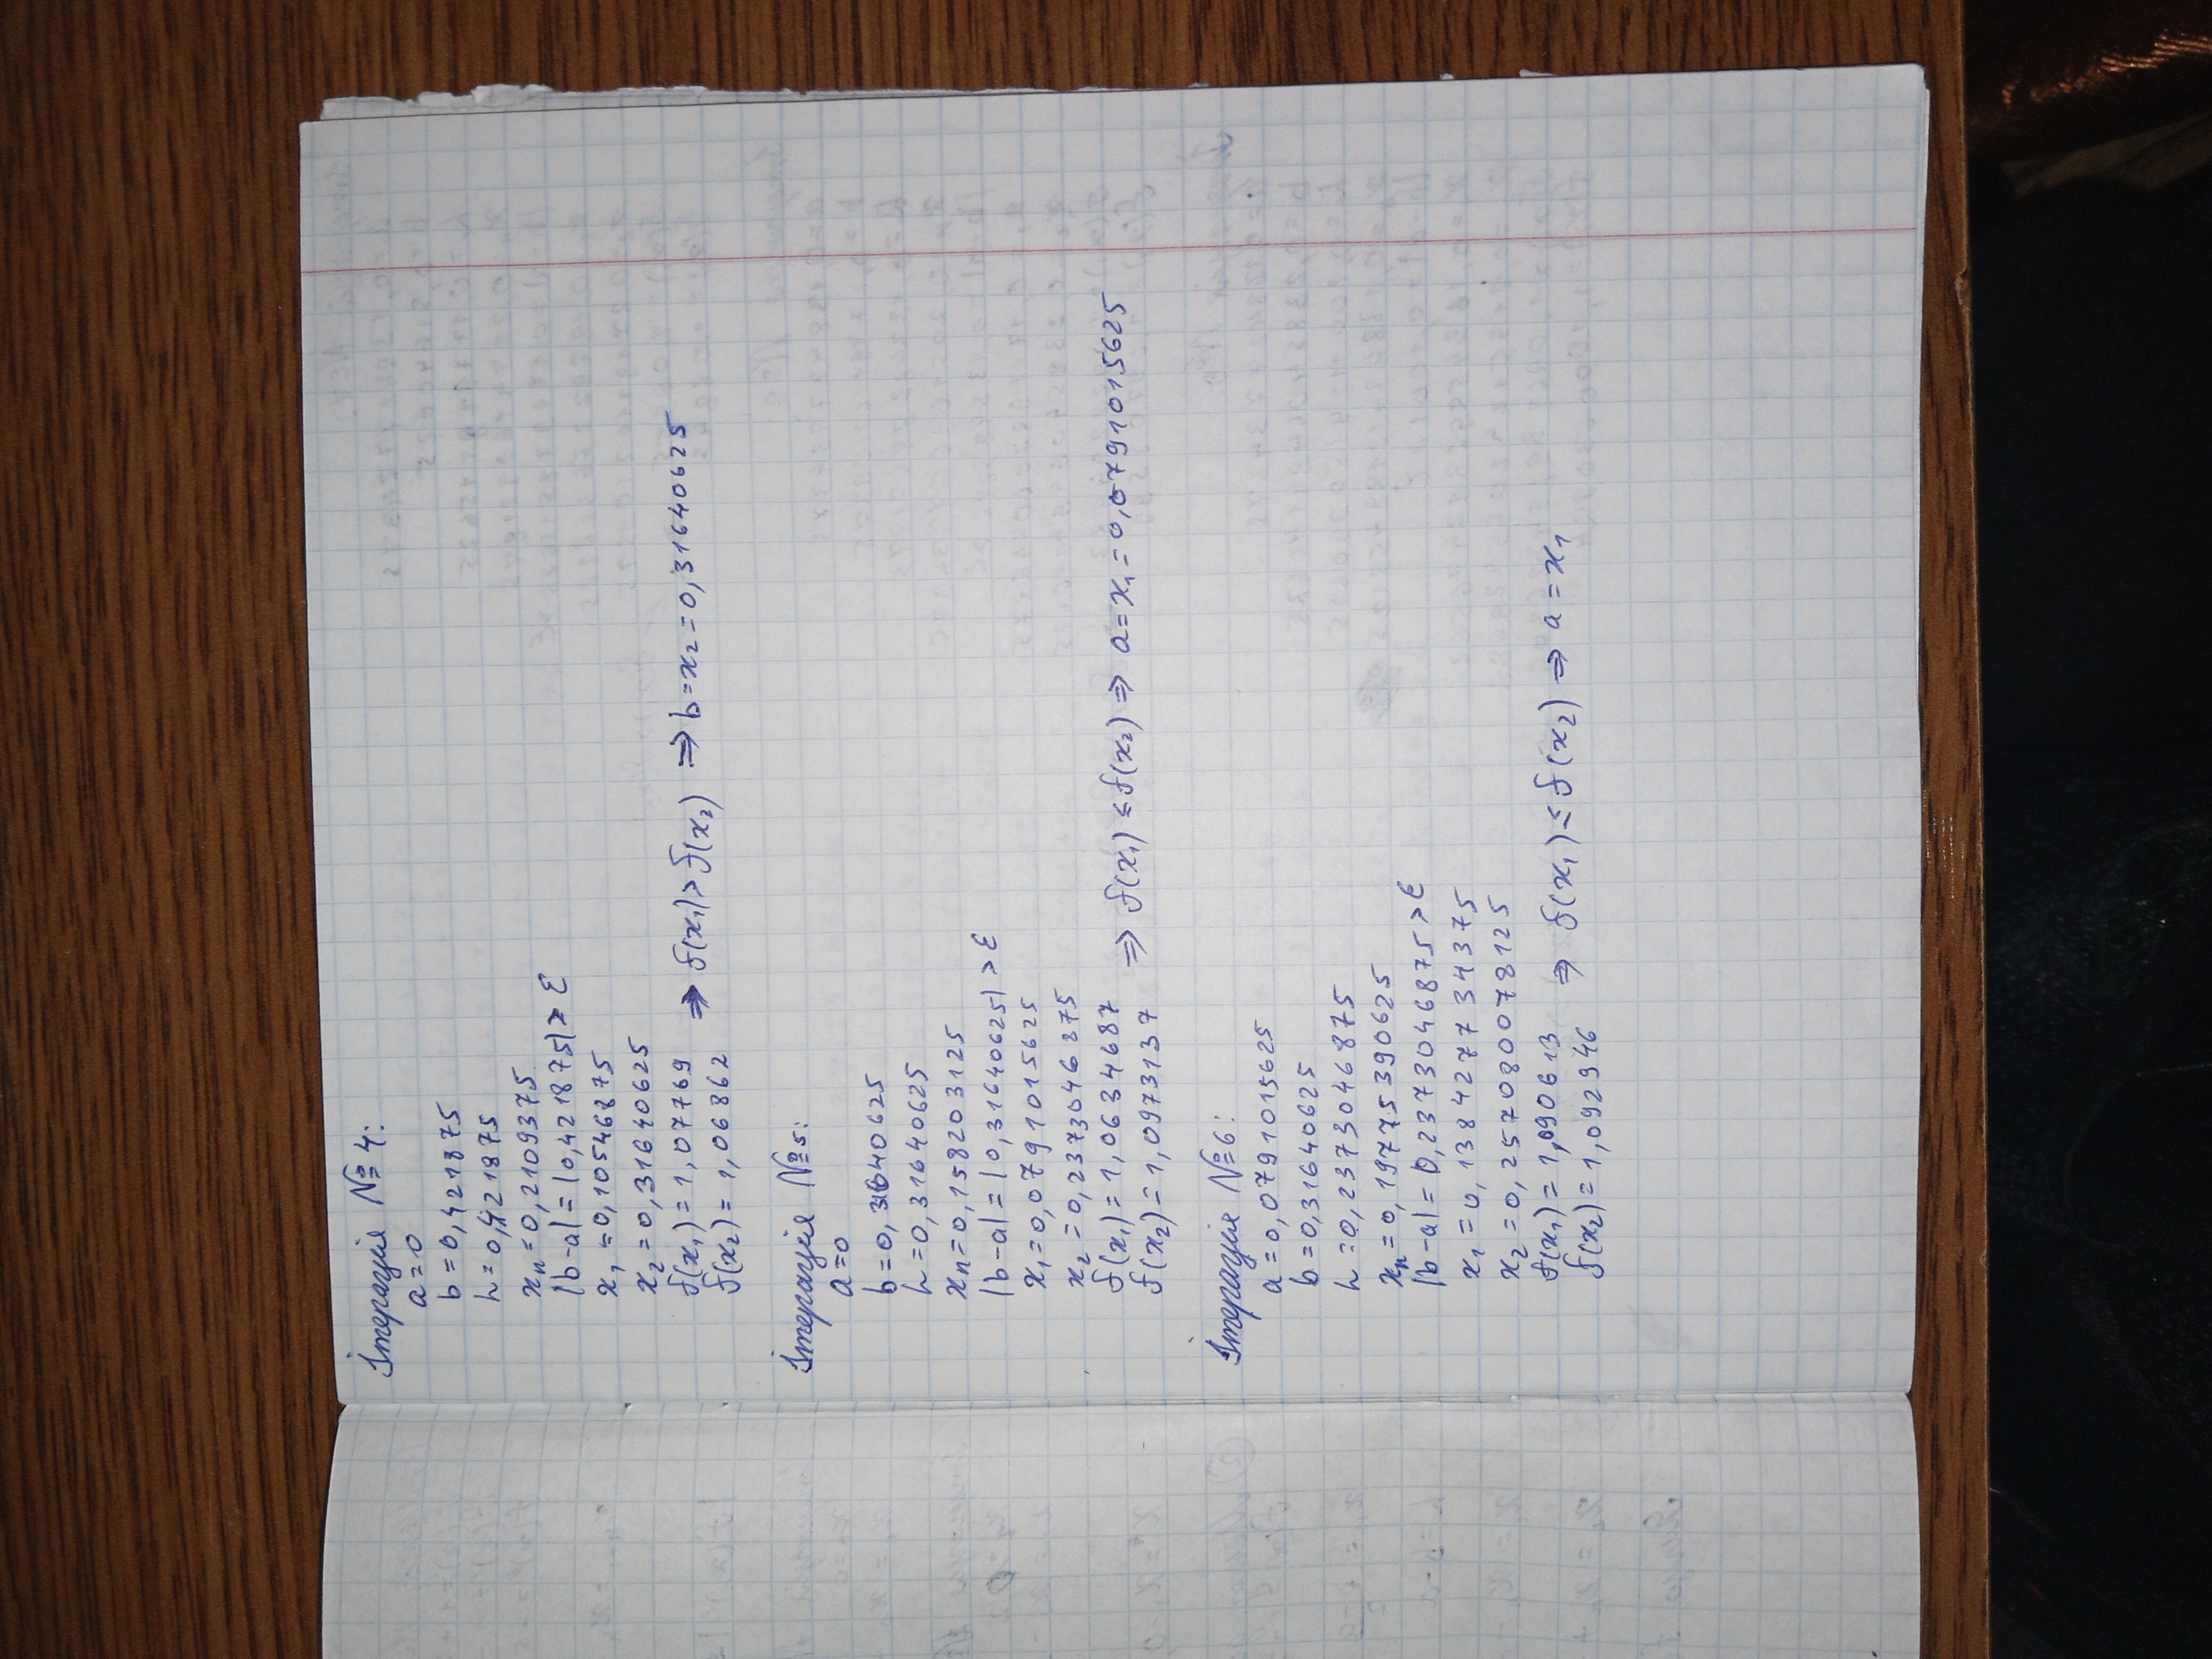 Ітерація №4:
a=0
b=0,421875
h=0,421875
xₙ=0,2109375
|b-a|=|0,421875|>ε
x₁=0,10546875
x₂=0,31640625
f(x₁)=1,07769
f(x₂)=1,06862
⇒ f(x₁)>f(x₂) ⇒ b=x₂=0,31640625
Ітерація №5:
a=0
b=0,31640625
h=0,31640625
xₙ=0,158203125
|b-a|=|0,31640625|>ε
x₁=0,0791015625
x₂=0,2373046875
f(x₁)=1,0634687
f(x₂)=1,0973137
⇒ f(x₁)≤f(x₂) ⇒ a=x₁=0,0791015625
Ітерація №6:
a=0,0791015625
b=0,31640625
h=0,2373046875
xₙ=0,19775390625
|b-a|=|0,2373046875>ε
x₁=0,138427734375
x₂=0,257080078125
f(x₁)=1,090613
f(x₂)=1,092946
⇒ f(x₁)≤f(x₂) ⇒ a=x₁